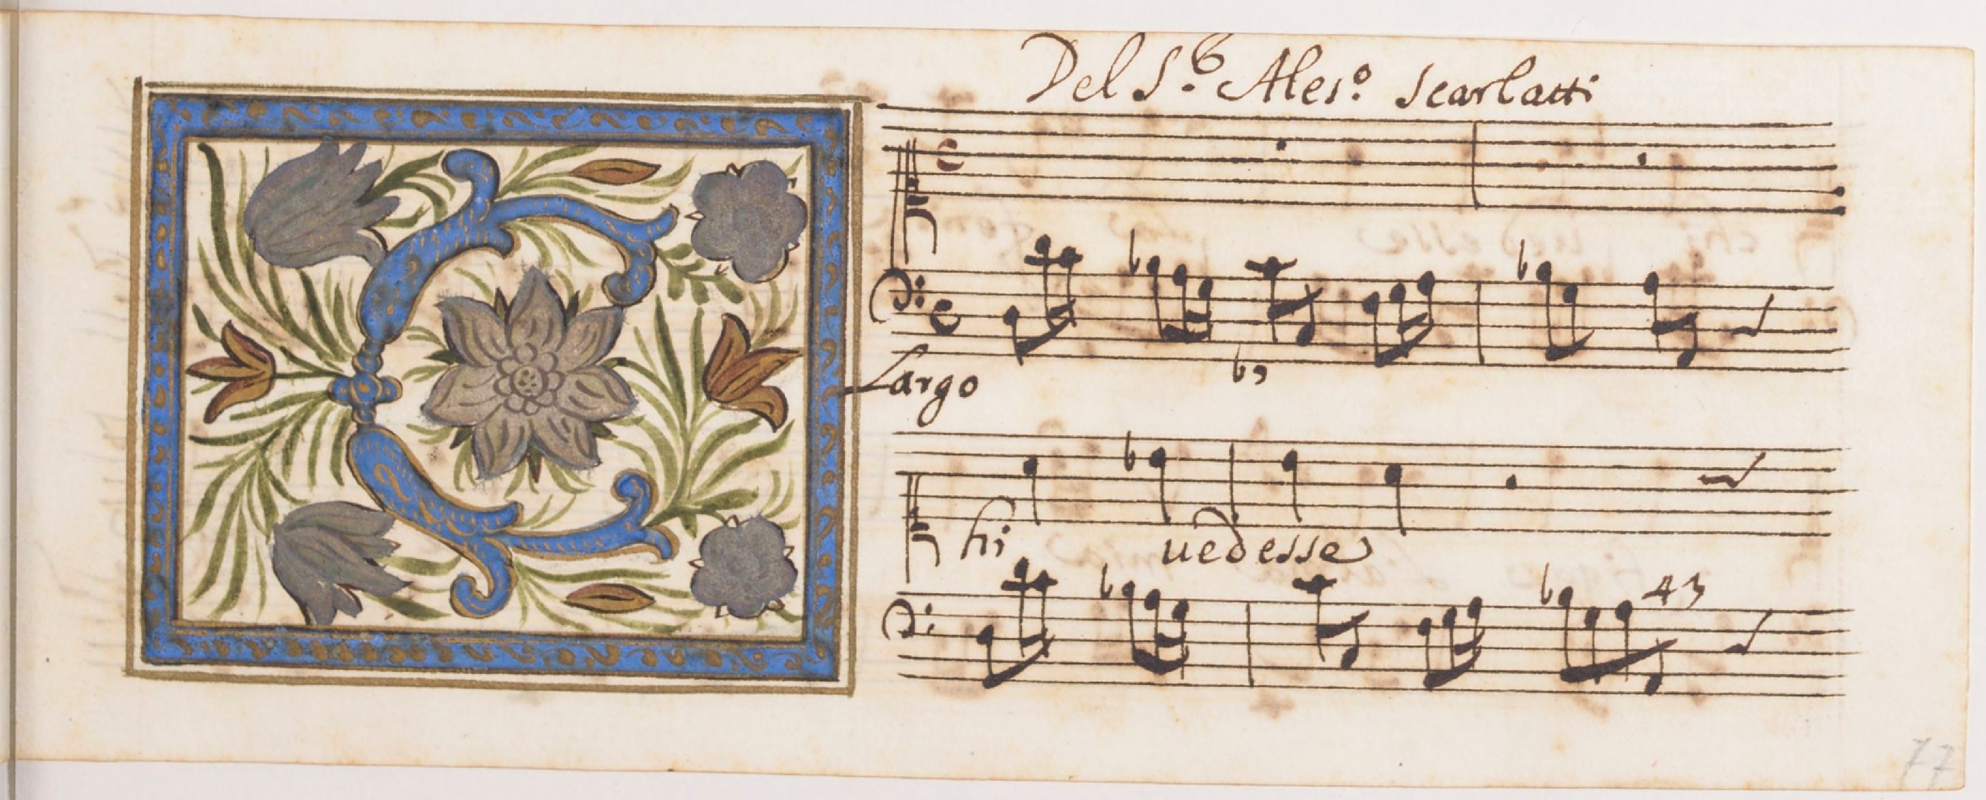 Del S.r Ales.o Scarlatti
Largo
C hi uedesse
43
77